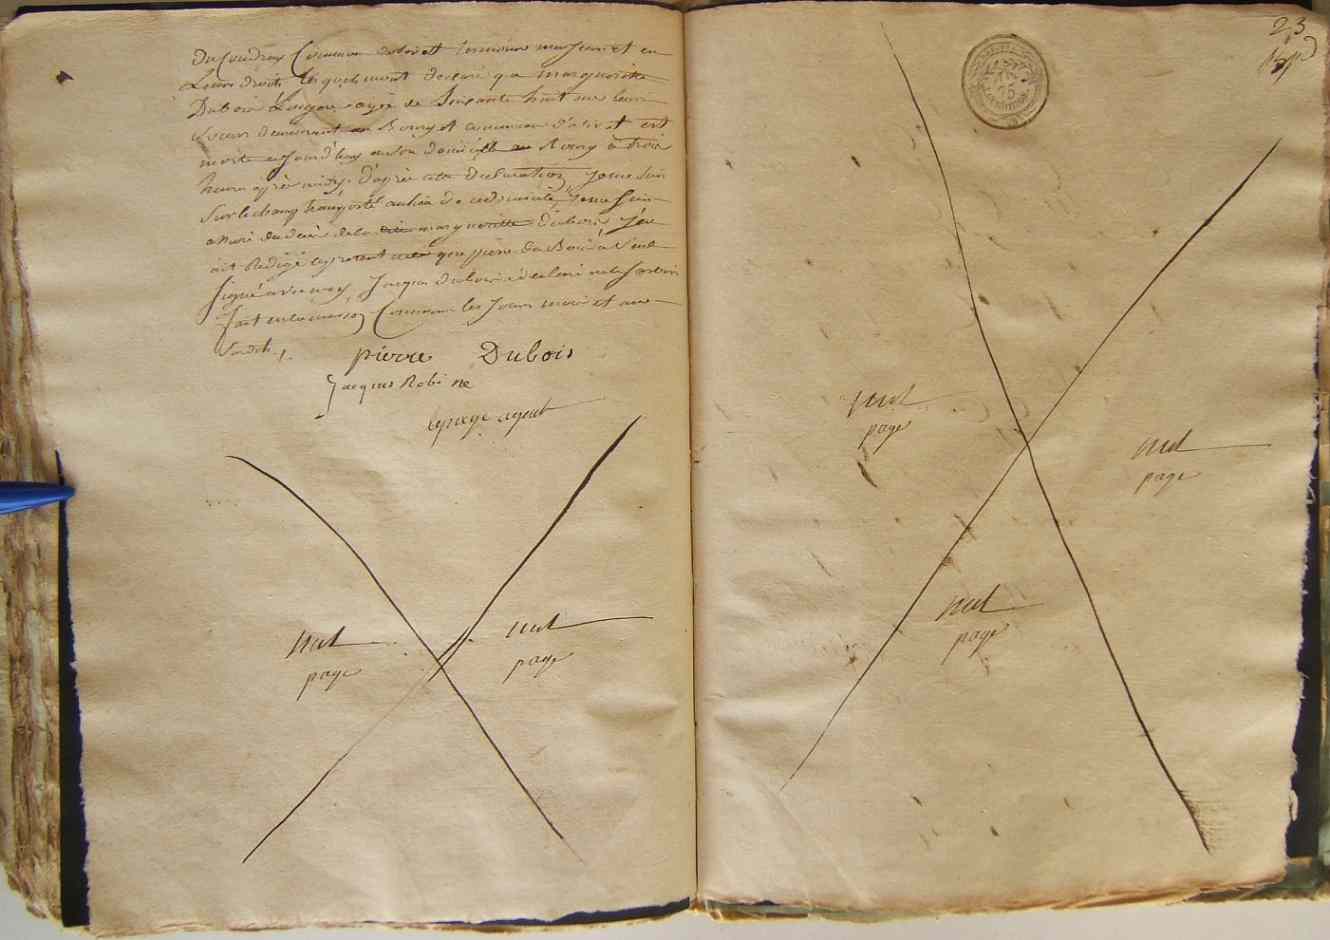 Du Coudray Commune dolivet tous deux majeurs et en
Leurs droits lesquels mont declaré que marguerite
Dubois agée de Soixante huit ans leur
Soeur demeurant au Bourg et commune d'olivet est
morte aujourd'huy en son domicille au Bourg à trois
heures après midy. d'après cette declaration, je me suis
Sur le champ transporté au lieu de ce domicile, je me suis
assuré du décès de la marguerite dubois, j'en
ait Rédigé le present que pierre Du Bois à Seul
Signé avec moy, Jacques dubois a déclaré ne le savoir
fait en la maison Commune les jours mois et an
Susdit /.
pierre Dubois
Jacques Robine
lepage agent
nul
page
nul
page
23
nul
page
nul
page
nul
page